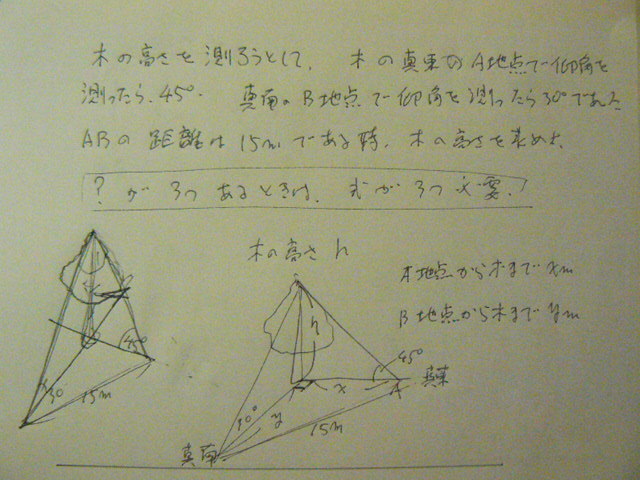 木の高さを測ろうとして、 木の真東のA地点で仰角を
測ったら、45°. 真南のB地点で仰角を測ったら30°であった
ABの距離は15mである時、木の高さを求めよ.
?が3つあるときは、式が3つ必要!
木の高さ h
A地点から木まで xm
B地点から木まで ym
45°
30
15m
h
45°
x
A
真東
30°
y
15m
真南